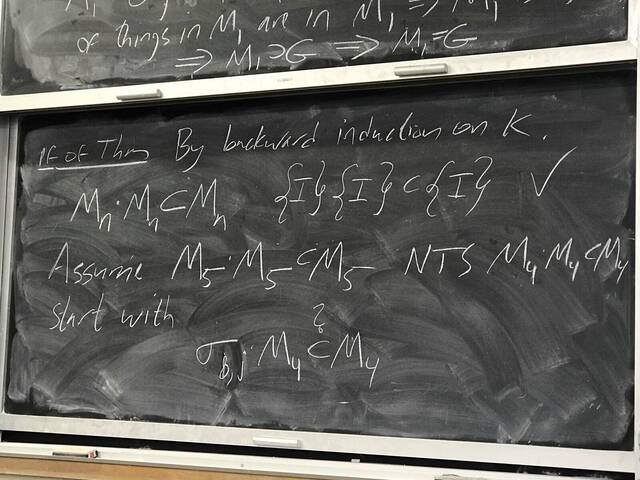 of things in M₁ are in M₁ ⇒
⇒ M₁⊃G ⇒ M₁=G
Pf of Thm By backward induction on K.
Mₙ·Mₙ⊂Mₙ {I}{I}⊂{I} ✓
Assume M₅·M₅⊂M₅ NTS M₄·M₄⊂M₄
Start with
?
σ₈,ⱼ·M₄⊂M₄